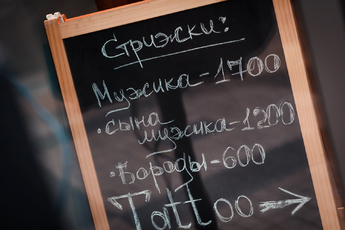 Стрижки:
Мужика-1700
·сына
мужика-1200
·Бороды-600
Tattoo →